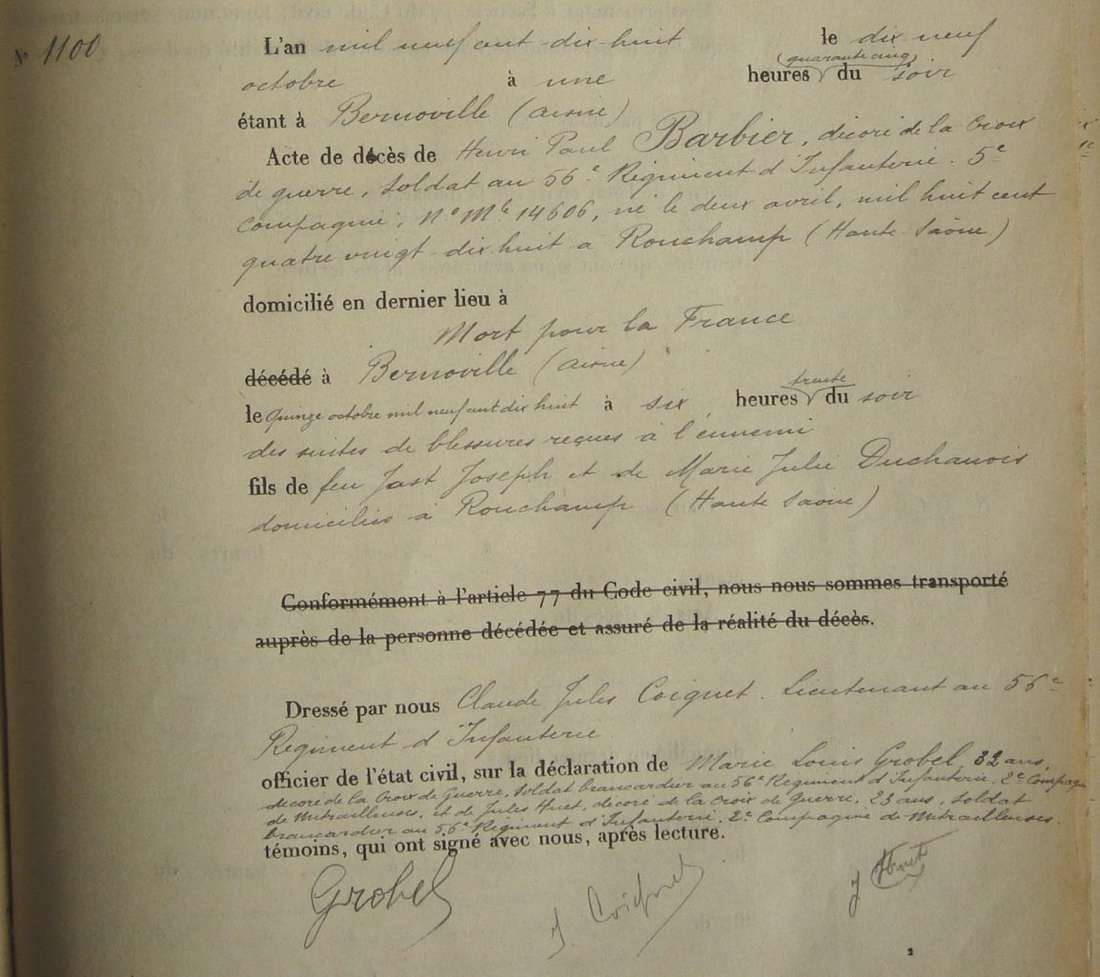 N° 1100
L'an mil neuf cent dix huit le dix neuf
octobre à une heures (quarante cinq) du soir
étant à Bernoville (Aisne)
Acte de décès de Henri Paul Barbier, décoré de la Croix
de guerre, soldat au 56e Régiment d'Infanterie. 5e
Compagnie; N° Mle 14606, né le deux avril, mil huit cent
quatre vingt dix huit à Ronchamp (Haute Saône)
domicilié en dernier lieu à
Mort pour la France
décédé à Bernoville (Aisne)
le quinze octobre mil neuf cent dix huit à six heures trente du soir
des suites de blessures reçues à l'ennemi
fils de feu Just Joseph et de Marie Julie Duchanois
domiciliés à Ronchamp (Haute Saône)
Conformément à l'article 77 du Code civil, nous nous sommes transporté
auprès de la personne décédée et assuré de la réalité du décès.
Dressé par nous Claude Jules Coignet. Lieutenant au 56e
Régiment d'Infanterie
officier de l'état civil, sur la déclaration de Marie Louis Grobel, 32 ans,
décoré de la Croix de Guerre, soldat brancardier au 56e Régiment d'Infanterie, 2e Compagnie
de Mitrailleuses, et de Jules Huet, décoré de la Croix de Guerre, 23 ans, soldat
brancardier au 56e Régiment d'Infanterie. 2e Compagnie de Mitrailleuses.
témoins, qui ont signé avec nous, après lecture.
Grobel J. Coignet J Huet
2